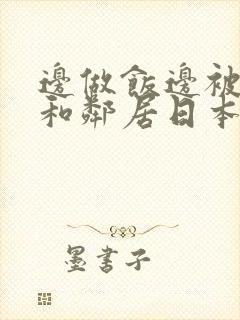 邊做飯邊被
和鄰居日本
墨書子